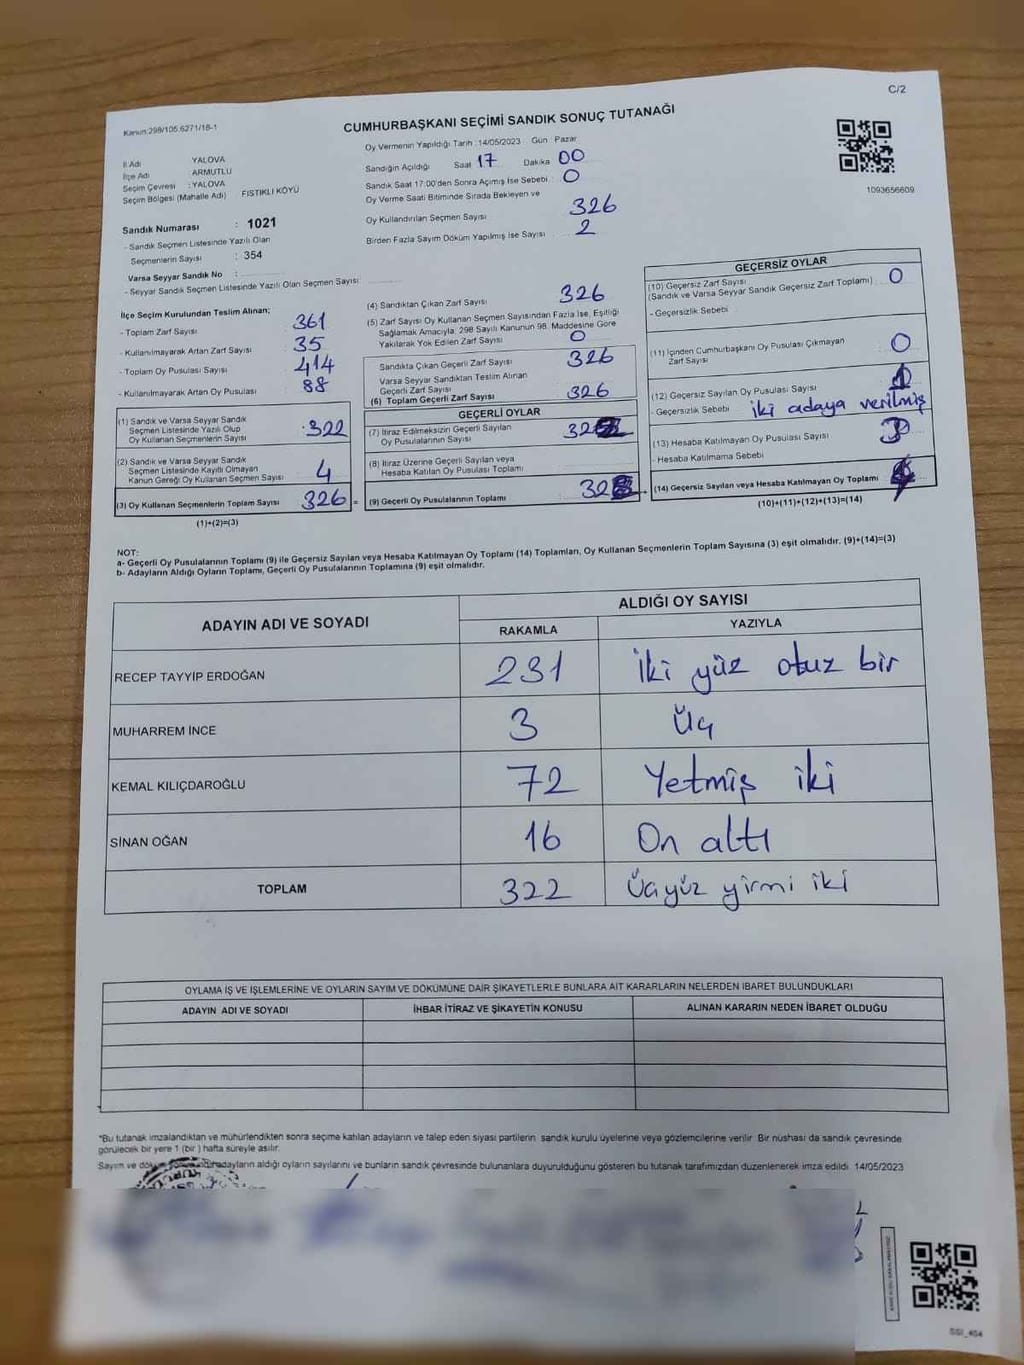 C/2
Kanun:298/105;6271/16-1
CUMHURBAŞKANI SEÇİMİ SANDIK SONUÇ TUTANAĞI
İl Adı YALOVA
İlçe Adı ARMUTLU
Seçim Çevresi : YALOVA
Seçim Bölgesi (Mahalle Adı) FISTIKLI KÖYÜ
Sandık Numarası : 1021
- Sandık Seçmen Listesinde Yazılı Olan
Seçmenlerin Sayısı : 354
Varsa Seyyar Sandık No :
- Seyyar Sandık Seçmen Listesinde Yazılı Olan Seçmen Sayısı:
Oy Vermenin Yapıldığı Tarih : 14/05/2023 Gün Pazar
Sandığın Açıldığı Saat 17 Dakika 00
Sandık Saat 17:00'den Sonra Açımış İse Sebebi : 0
Oy Verme Saati Bitiminde Sırada Bekleyen ve
Oy Kullandırılan Seçmen Sayısı 326
Birden Fazla Sayım Döküm Yapılmış İse Sayısı 2
1093656609
İlçe Seçim Kurulundan Teslim Alınan;
- Toplam Zarf Sayısı 361
- Kullanılmayarak Artan Zarf Sayısı 35
- Toplam Oy Pusulası Sayısı 414
- Kullanılmayarak Artan Oy Pusulası 88
(1) Sandık ve Varsa Seyyar Sandık
Seçmen Listesinde Yazılı Olup
Oy Kullanan Seçmenlerin Sayısı 322
(2) Sandık ve Varsa Seyyar Sandık
Seçmen Listesinde Kayıtlı Olmayan
Kanun Gereği Oy Kullanan Seçmen Sayısı 4
(3) Oy Kullanan Seçmenlerin Toplam Sayısı 326 =
(1)+(2)=(3)
(4) Sandıktan Çıkan Zarf Sayısı 326
(5) Zarf Sayısı Oy Kullanan Seçmen Sayısından Fazla İse, Eşitliği
Sağlamak Amacıyla, 298 Sayılı Kanunun 98. Maddesine Göre
Yakılarak Yok Edilen Zarf Sayısı 0
Sandıkta Çıkan Geçerli Zarf Sayısı 326
Varsa Seyyar Sandıktan Teslim Alınan
Geçerli Zarf Sayısı
(6) Toplam Geçerli Zarf Sayısı 326
GEÇERLİ OYLAR
(7) İtiraz Edilmeksizin Geçerli Sayılan
Oy Pusulalarının Sayısı
(8) İtiraz Üzerine Geçerli Sayılan veya
Hesaba Katılan Oy Pusulası Toplamı
(9) Geçerli Oy Pusulalarının Toplamı
GEÇERSİZ OYLAR
(10) Geçersiz Zarf Sayısı 0
(Sandık ve Varsa Seyyar Sandık Geçersiz Zarf Toplamı)
- Geçersizlik Sebebi
(11) İçinden Cumhurbaşkanı Oy Pusulası Çıkmayan
Zarf Sayısı 0
(12) Geçersiz Sayılan Oy Pusulası Sayısı 1
- Geçersizlik Sebebi iki adaya verilmiş
(13) Hesaba Katılmayan Oy Pusulası Sayısı 3
- Hesaba Katılmama Sebebi
(14) Geçersiz Sayılan veya Hesaba Katılmayan Oy Toplamı 4
(10)+(11)+(12)+(13)=(14)
NOT:
a- Geçerli Oy Pusulalarının Toplamı (9) ile Geçersiz Sayılan veya Hesaba Katılmayan Oy Toplamı (14) Toplamları, Oy Kullanan Seçmenlerin Toplam Sayısına (3) eşit olmalıdır. (9)+(14)=(3)
b- Adayların Aldığı Oyların Toplamı, Geçerli Oy Pusulalarının Toplamına (9) eşit olmalıdır.
ADAYIN ADI VE SOYADI ALDIĞI OY SAYISI
RAKAMLA YAZIYLA
RECEP TAYYİP ERDOĞAN 231 İki yüz otuz bir
MUHARREM İNCE 3 Üç
KEMAL KILIÇDAROĞLU 72 Yetmiş iki
SİNAN OĞAN 16 On altı
TOPLAM 322 Üçyüz yirmi iki
OYLAMA İŞ VE İŞLEMLERİNE VE OYLARIN SAYIM VE DÖKÜMÜNE DAİR ŞİKAYETLERLE BUNLARA AİT KARARLARIN NELERDEN İBARET BULUNDUKLARI
ADAYIN ADI VE SOYADI İHBAR İTİRAZ VE ŞİKAYETİN KONUSU ALINAN KARARIN NEDEN İBARET OLDUĞU
*Bu tutanak imzalandıktan ve mühürlendikten sonra seçime katılan adayların ve talep eden siyasi partilerin sandık kurulu üyelerine veya gözlemcilerine verilir. Bir nüshası da sandık çevresinde
görülecek bir yere 1 (bir) hafta süreyle asılır.
Sayım ve adayların aldığı oyların sayılarını ve bunların sandık çevresinde bulunanlara duyurulduğunu gösteren bu tutanak tarafımızdan düzenlenerek imza edildi. 14/05/2023
SSI_404